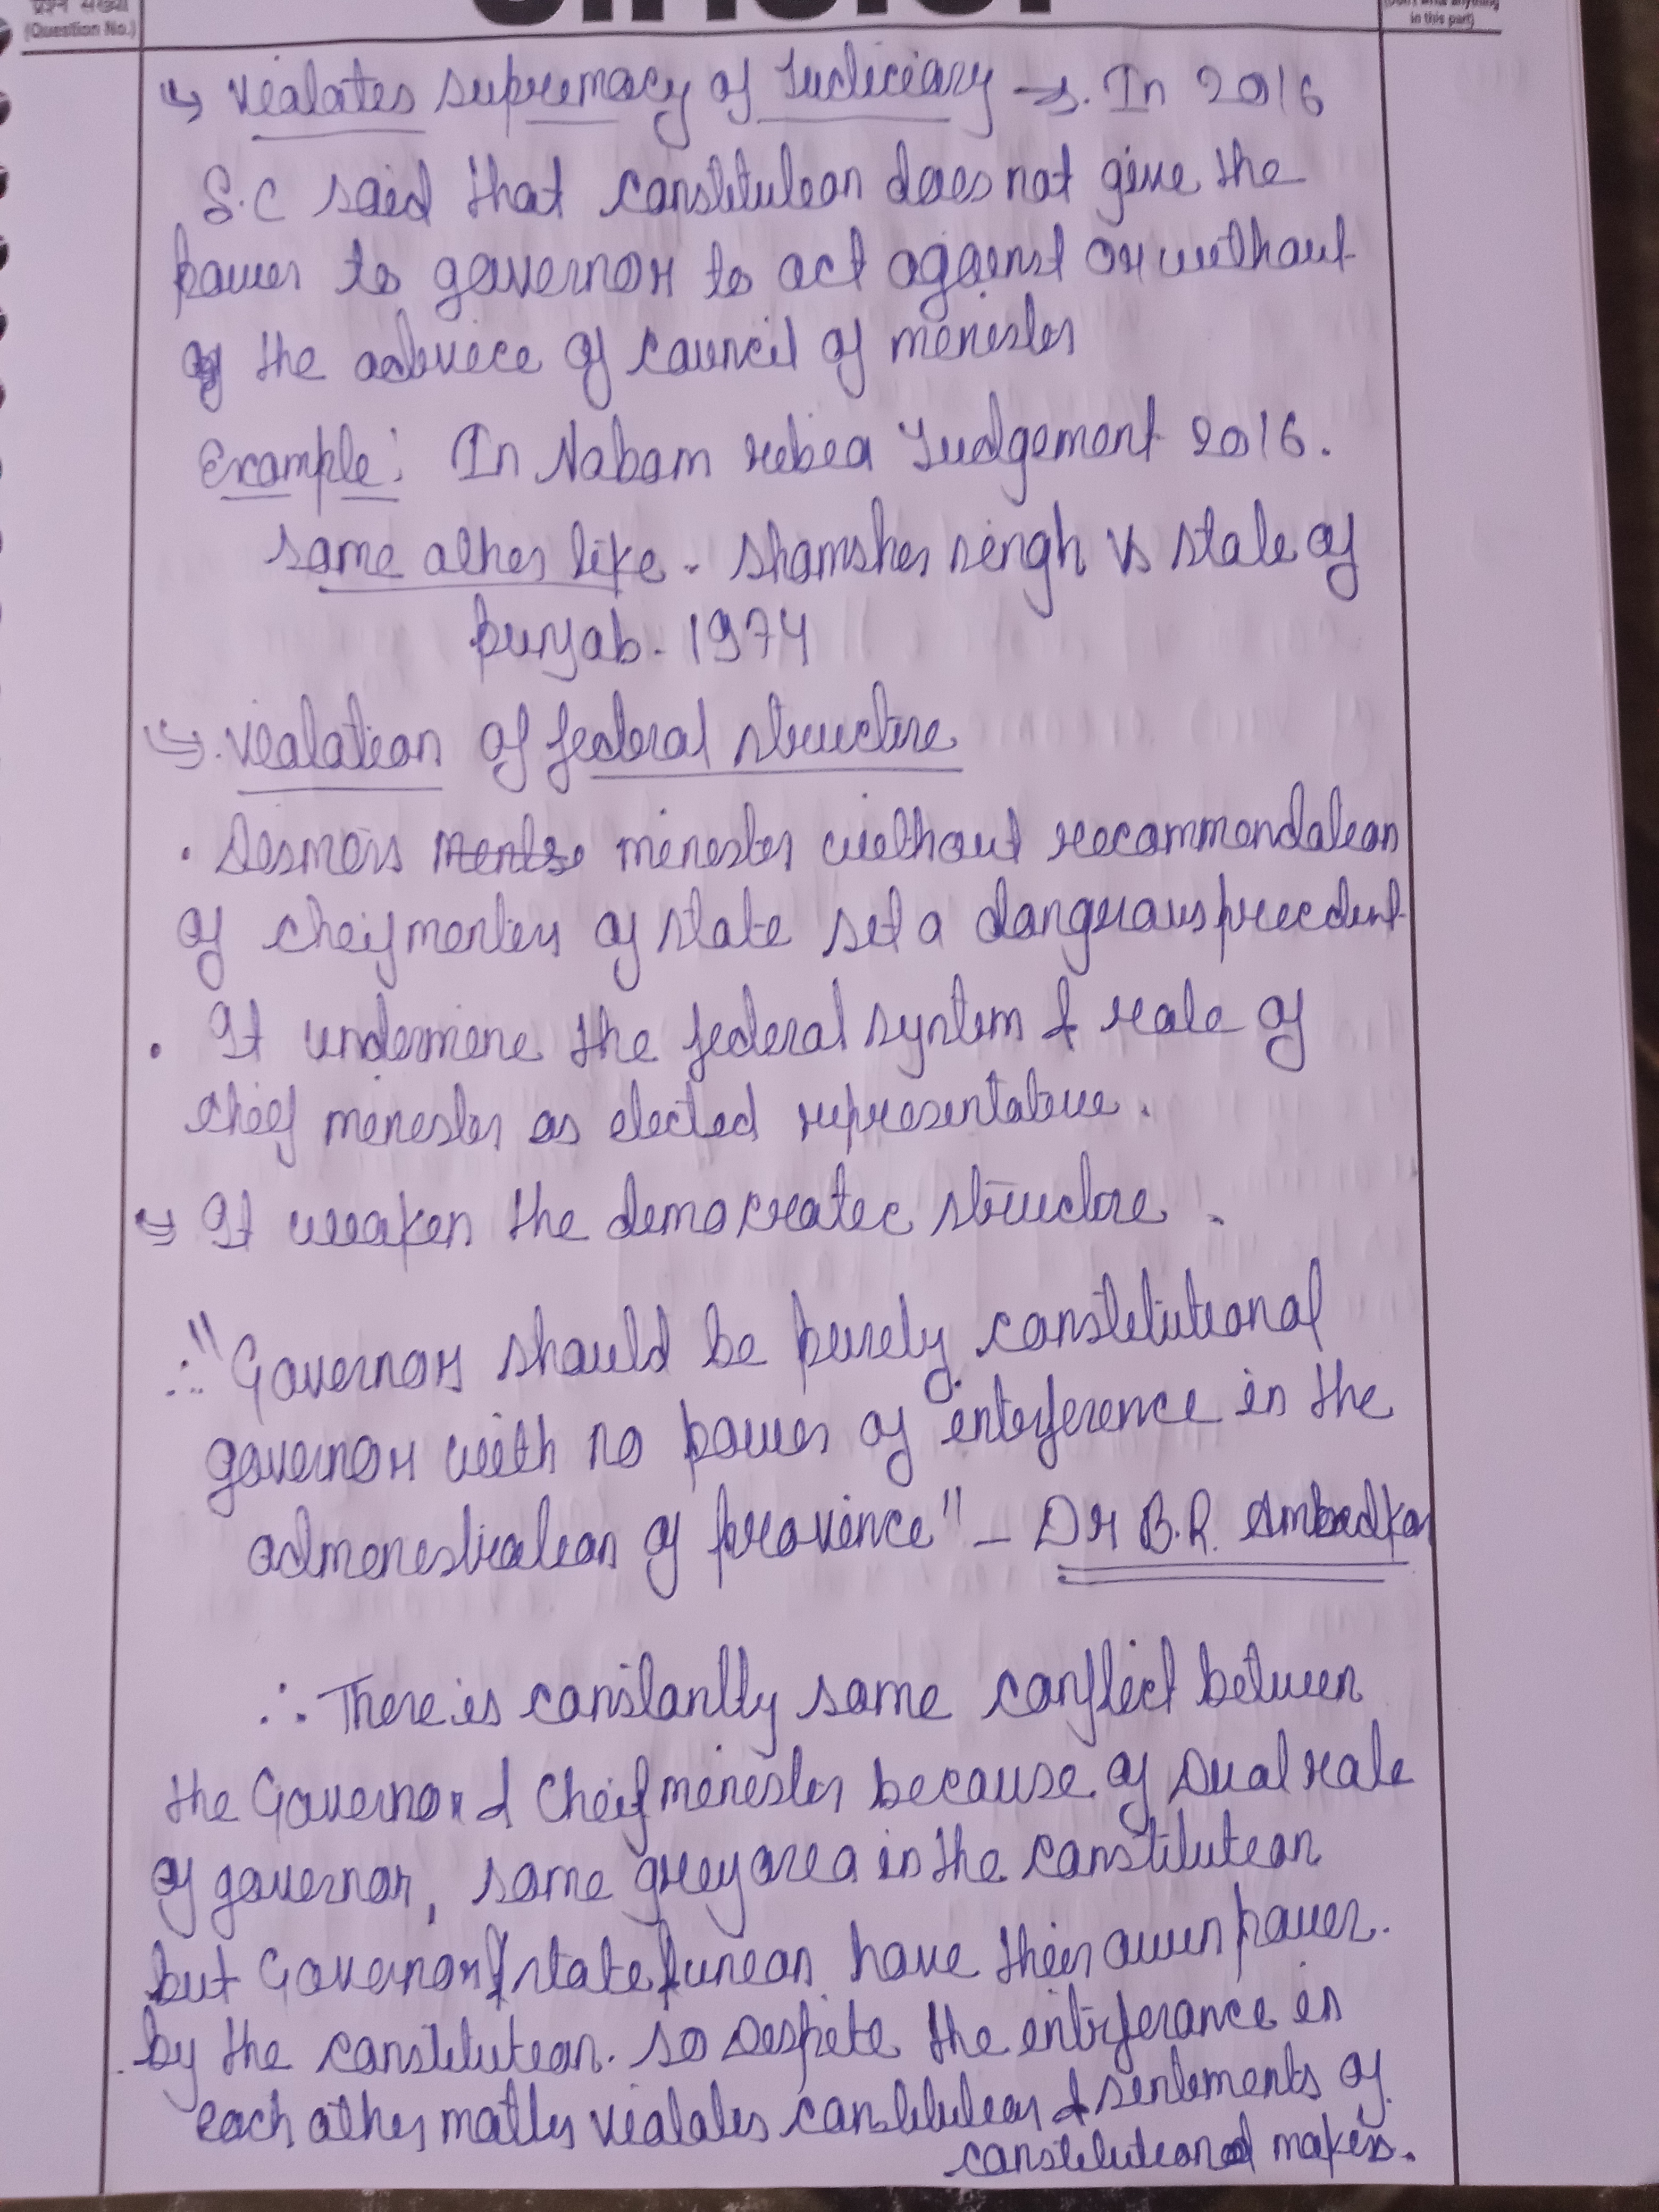 प्रश्न संख्या
(Question No.)
in this part)
↳ Violates supremacy of Judiciary →. In 2016
S.C said that constitution does not give the
power to governor to act against or without
of the advice of council of minister
Example: In Nabam rebia Judgement 2016.
some other like - Shamsher singh vs state of
punjab - 1974
↳ violation of federal structure
• Dismois ministr without recommendation
of cheif ministers of state set a dangerous precedent
• It undermine the federal system & role of
cheif minister as elected representative.
↳ It weaken the democratic structure.
∴ "Governor should be purely constitutional
governor with no power of interference in the
administration of province" - Dr B.R. Ambedkar
∴ There is constantly some conflict between
the Governor & Cheif minister because of Dual role
of governor, some grey area in the constitution
but Governor/state/union have their own power
by the constitution. so Despite the interferance in
each other matter violates constitution & sentiments of
constitutional makers.